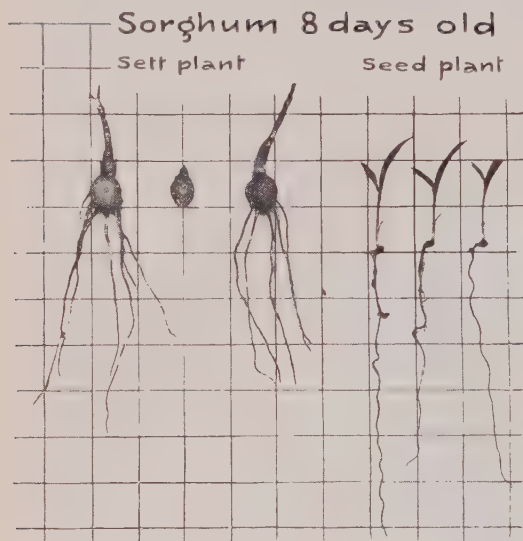 Sorghum 8 days old
Sett plant Seed plant